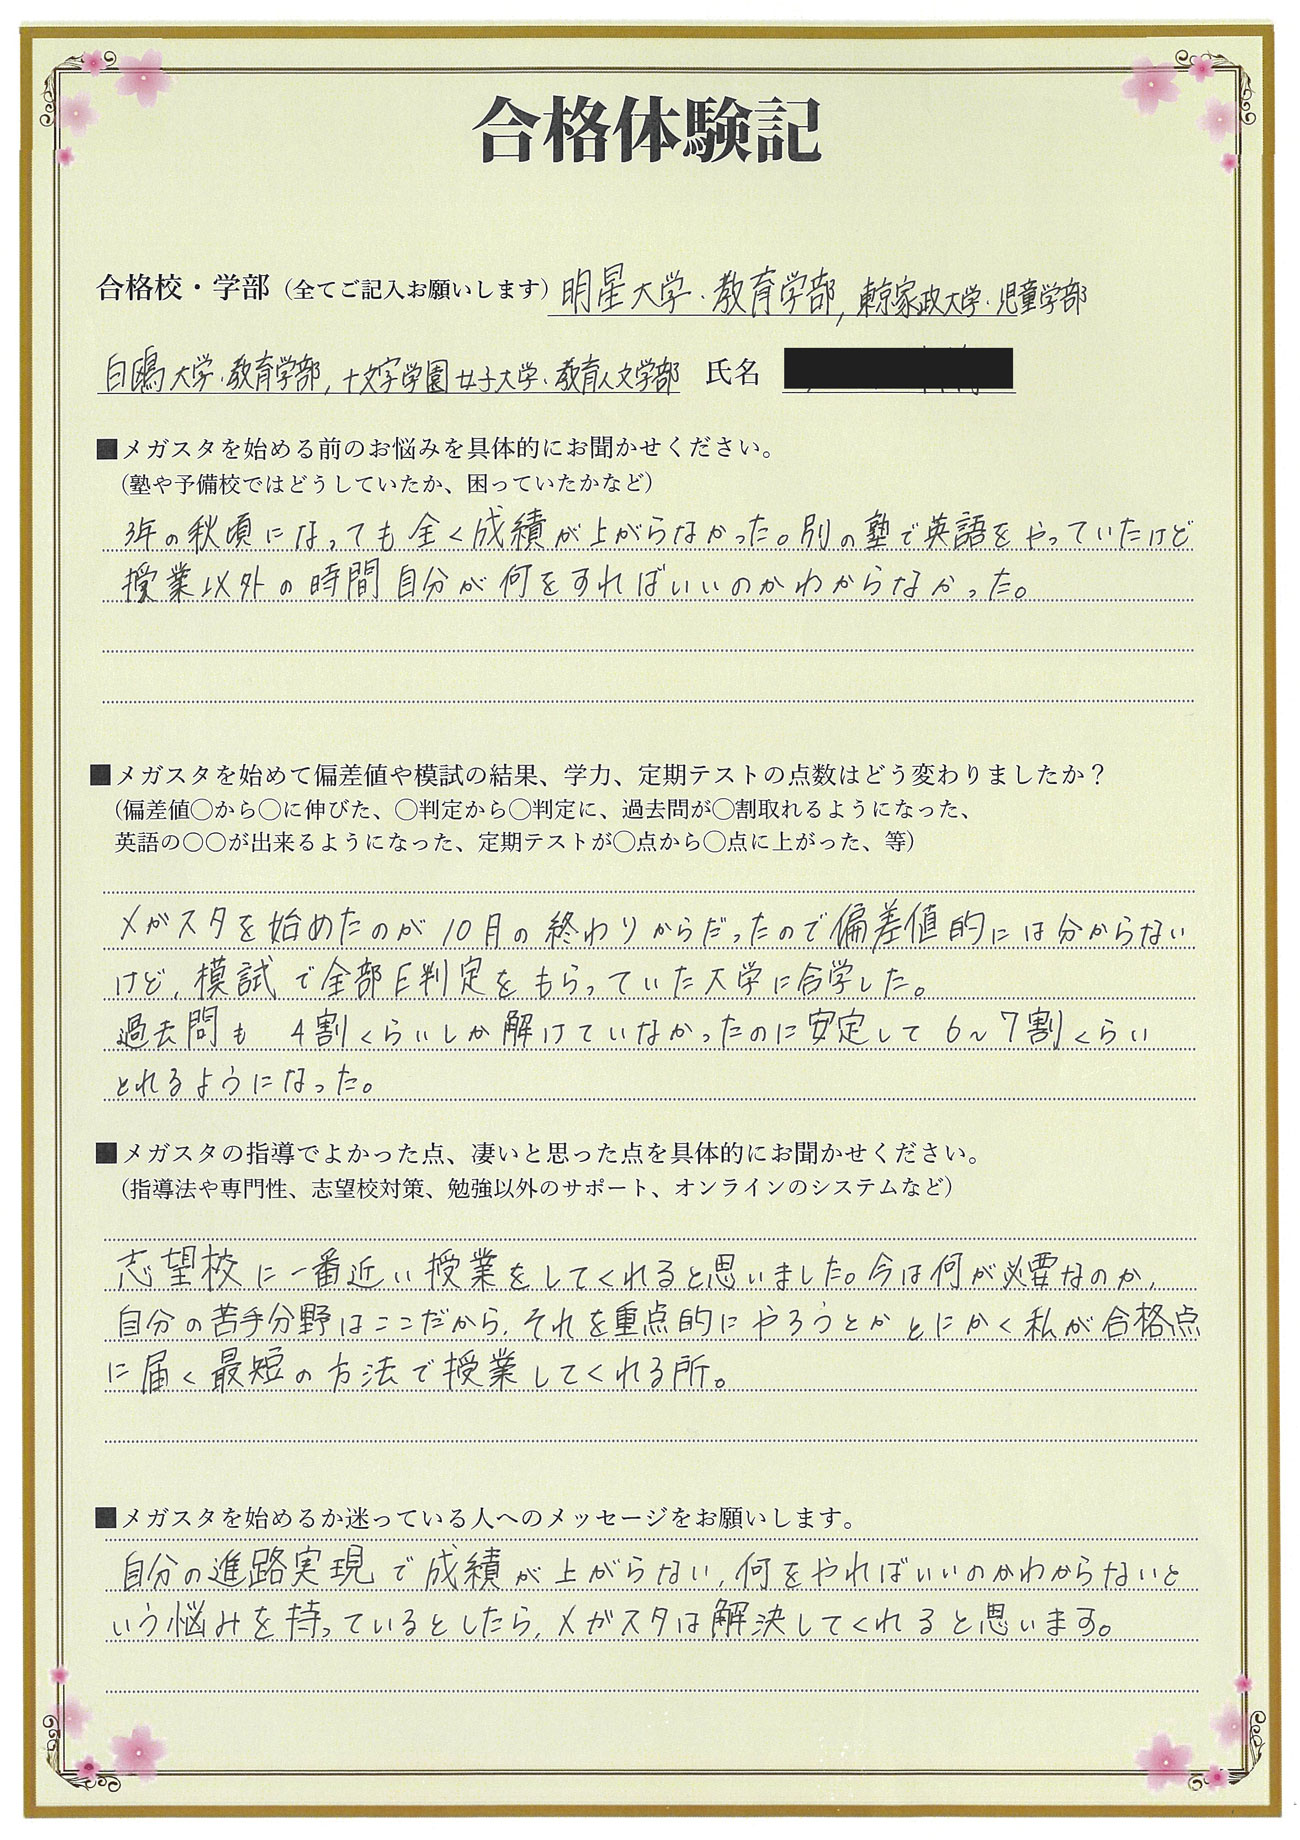 合格体験記
合格校・学部（全てご記入お願いします）明星大学・教育学部, 東京家政大学・児童学部
白鴎大学・教育学部, 十文字学園女子大学・教育人文学部 氏名
■メガスタを始める前のお悩みを具体的にお聞かせください。
（塾や予備校ではどうしていたか、困っていたかなど）
3年の秋頃になっても全く成績が上がらなかった。別の塾で英語をやっていたけど
授業以外の時間自分が何をすればいいのかわからなかった。
■メガスタを始めて偏差値や模試の結果、学力、定期テストの点数はどう変わりましたか？
（偏差値〇から〇に伸びた、〇判定から〇判定に、過去問が〇割取れるようになった、
英語の〇〇が出来るようになった、定期テストが〇点から〇点に上がった、等）
メガスタを始めたのが10月の終わりからだったので偏差値的には分からない
けど、模試で全部E判定をもらっていた大学に合学した。
過去問も 4割くらいしか解けていなかったのに安定して6〜7割くらい
とれるようになった。
■メガスタの指導でよかった点、凄いと思った点を具体的にお聞かせください。
（指導法や専門性、志望校対策、勉強以外のサポート、オンラインのシステムなど）
志望校に一番近い授業をしてくれると思いました。今は何が必要なのか、
自分の苦手分野はここだから、それを重点的にやろうとかとにかく私が合格点
に届く最短の方法で授業してくれる所。
■メガスタを始めるか迷っている人へのメッセージをお願いします。
自分の進路実現で成績が上がらない、何をやればいいのかわからないと
いう悩みを持っているとしたら、メガスタは解決してくれると思います。